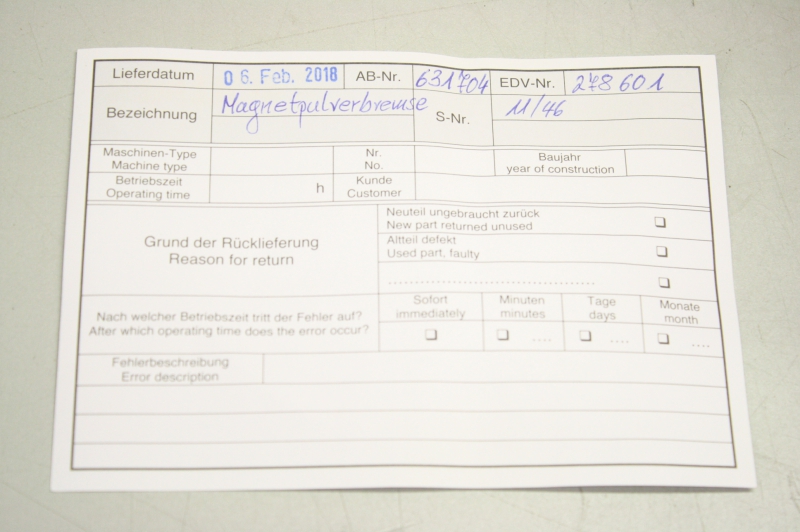 Lieferdatum 06. Feb. 2018 AB-Nr. 631704 EDV-Nr. 278601
Bezeichnung Magnetpulverbremse S-Nr. 11/46
Maschinen-Type Nr. Baujahr
Machine type No. year of construction
Betriebszeit h Kunde
Operating time Customer
Grund der Rücklieferung
Reason for return
Neuteil ungebraucht zurück
New part returned unused
Altteil defekt
Used part, faulty
Nach welcher Betriebszeit tritt der Fehler auf?
After which operating time does the error occur?
Sofort Minuten Tage Monate
immediately minutes days month
Fehlerbeschreibung
Error description